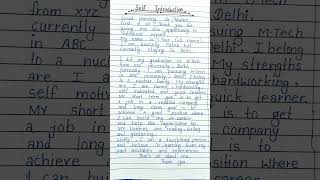 Self Introduction
Good morning Sir/Madam.
First of all Thank you for
giving me this opportunity to
introduce myself.
My name is (Your full name).
I am basically Patna but
currently staying in Delhi.
I did my graduation in B.Tech
from xyz university, Delhi.
Currently I am pursuing M-Tech
in ABC university Delhi. I belong
to a nuclear family. My strengths
are I am honest, hardworking,
self motivated and quick learner.
My short term goal is to get
a job in a reputed company
and long term goal is to
achieve a good position where
I can build my career
and help the organisation too.
My hobbies are reading, writing
and gardening.
Lastly, I am a disciplined person
and believe in learning from
past mistakes and experiences.
That's all about me.
Thank you
from xyz
currently
in ABC
to a nu
are I a
self mot
My short
a job in
and long
achieve
I can b
Delhi.
suing M-Tech
i. I belong
My strengths
hardworking,
quick learner.
is to get
company
is to
position where
career